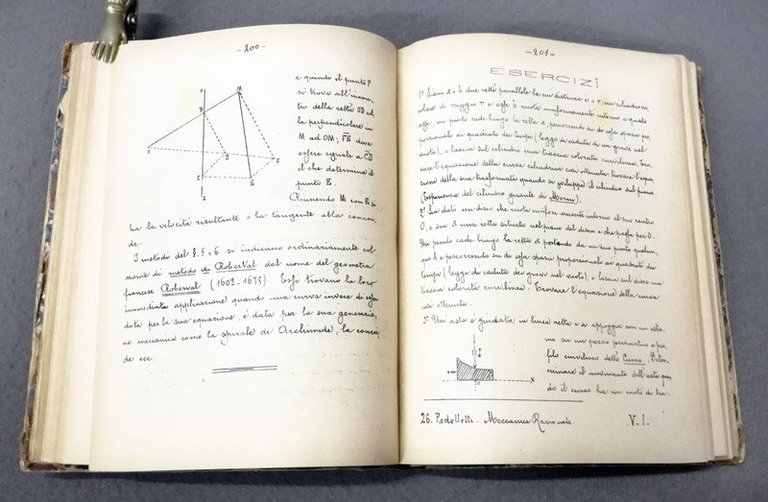 -200-
e quindi il punto P
si trova all'incon-
tro della retta OB col
la perpendicolare in
M ad OM;
deve
essere eguale a CD
il che determina il
punto E.
Riunendo M con E si
ha la velocità risultante o la tangente alla concoi-
de.
I metodi del §. 5 e 6 si indicano ordinariamente col
nome di metodo di Roberval dal nome del geometra
francese Roberval (1602-1675) Essi trovano la loro
immediata applicazione quando una curva invece di esser
data per la sua equazione, è data per la sua generazio-
ne meccanica come la spirale di Archimede, la concoi-
de ecc:
-201-
ESERCIZÎ
1° Siano a e b due rette parallele la cui distanza è = r, un cilindro cir-
colare di raggio r e asse b ruoti uniformemente intorno a questo
asse, un punto cade lungo la retta a, percorrendo di spazi pro-
porzionali ai quadrati dei tempi (legge di caduta di un grave nel
vuoto), e lascia sul cilindro una traccia colorata curvilinea. Tro-
vare l'equazione della curva cilindrica così ottenuta: trovare l'equa-
zione della sua trasformata quando si sviluppi il cilindro sul piano
(Esperienza del cilindro girante di Morin).
2° Sia dato un disco che ruota uniformemente intorno al suo centro
O, e sia a una retta situata nel piano del disco e che passa per O.
Un punto cade lungo la retta a partendo da un suo punto qualun-
que A e percorrendo spazi proporzionali ai quadrati dei
tempi (legge di caduta dei gravi nel vuoto), e lascia sul disco una
traccia colorata curvilinea. Trovare l'equazione della curva
così ottenuta.
3° Un'asta è guidata in linea retta e si appoggia con un estre-
mo su un pezzo prismatico a pro-
filo curvilineo detto Cuneo. Deter-
minare il movimento dell'asta quan-
do il cuneo ha un moto di tra-
X
26. Padelletti. Meccanica Razionale. V. I.